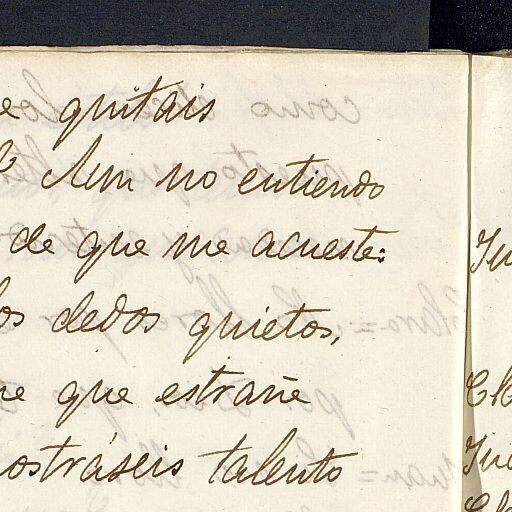 quitais
Aun no entiendo
de que me acueste:
los dedos quietos,
que que estrañe
mostráseis talento